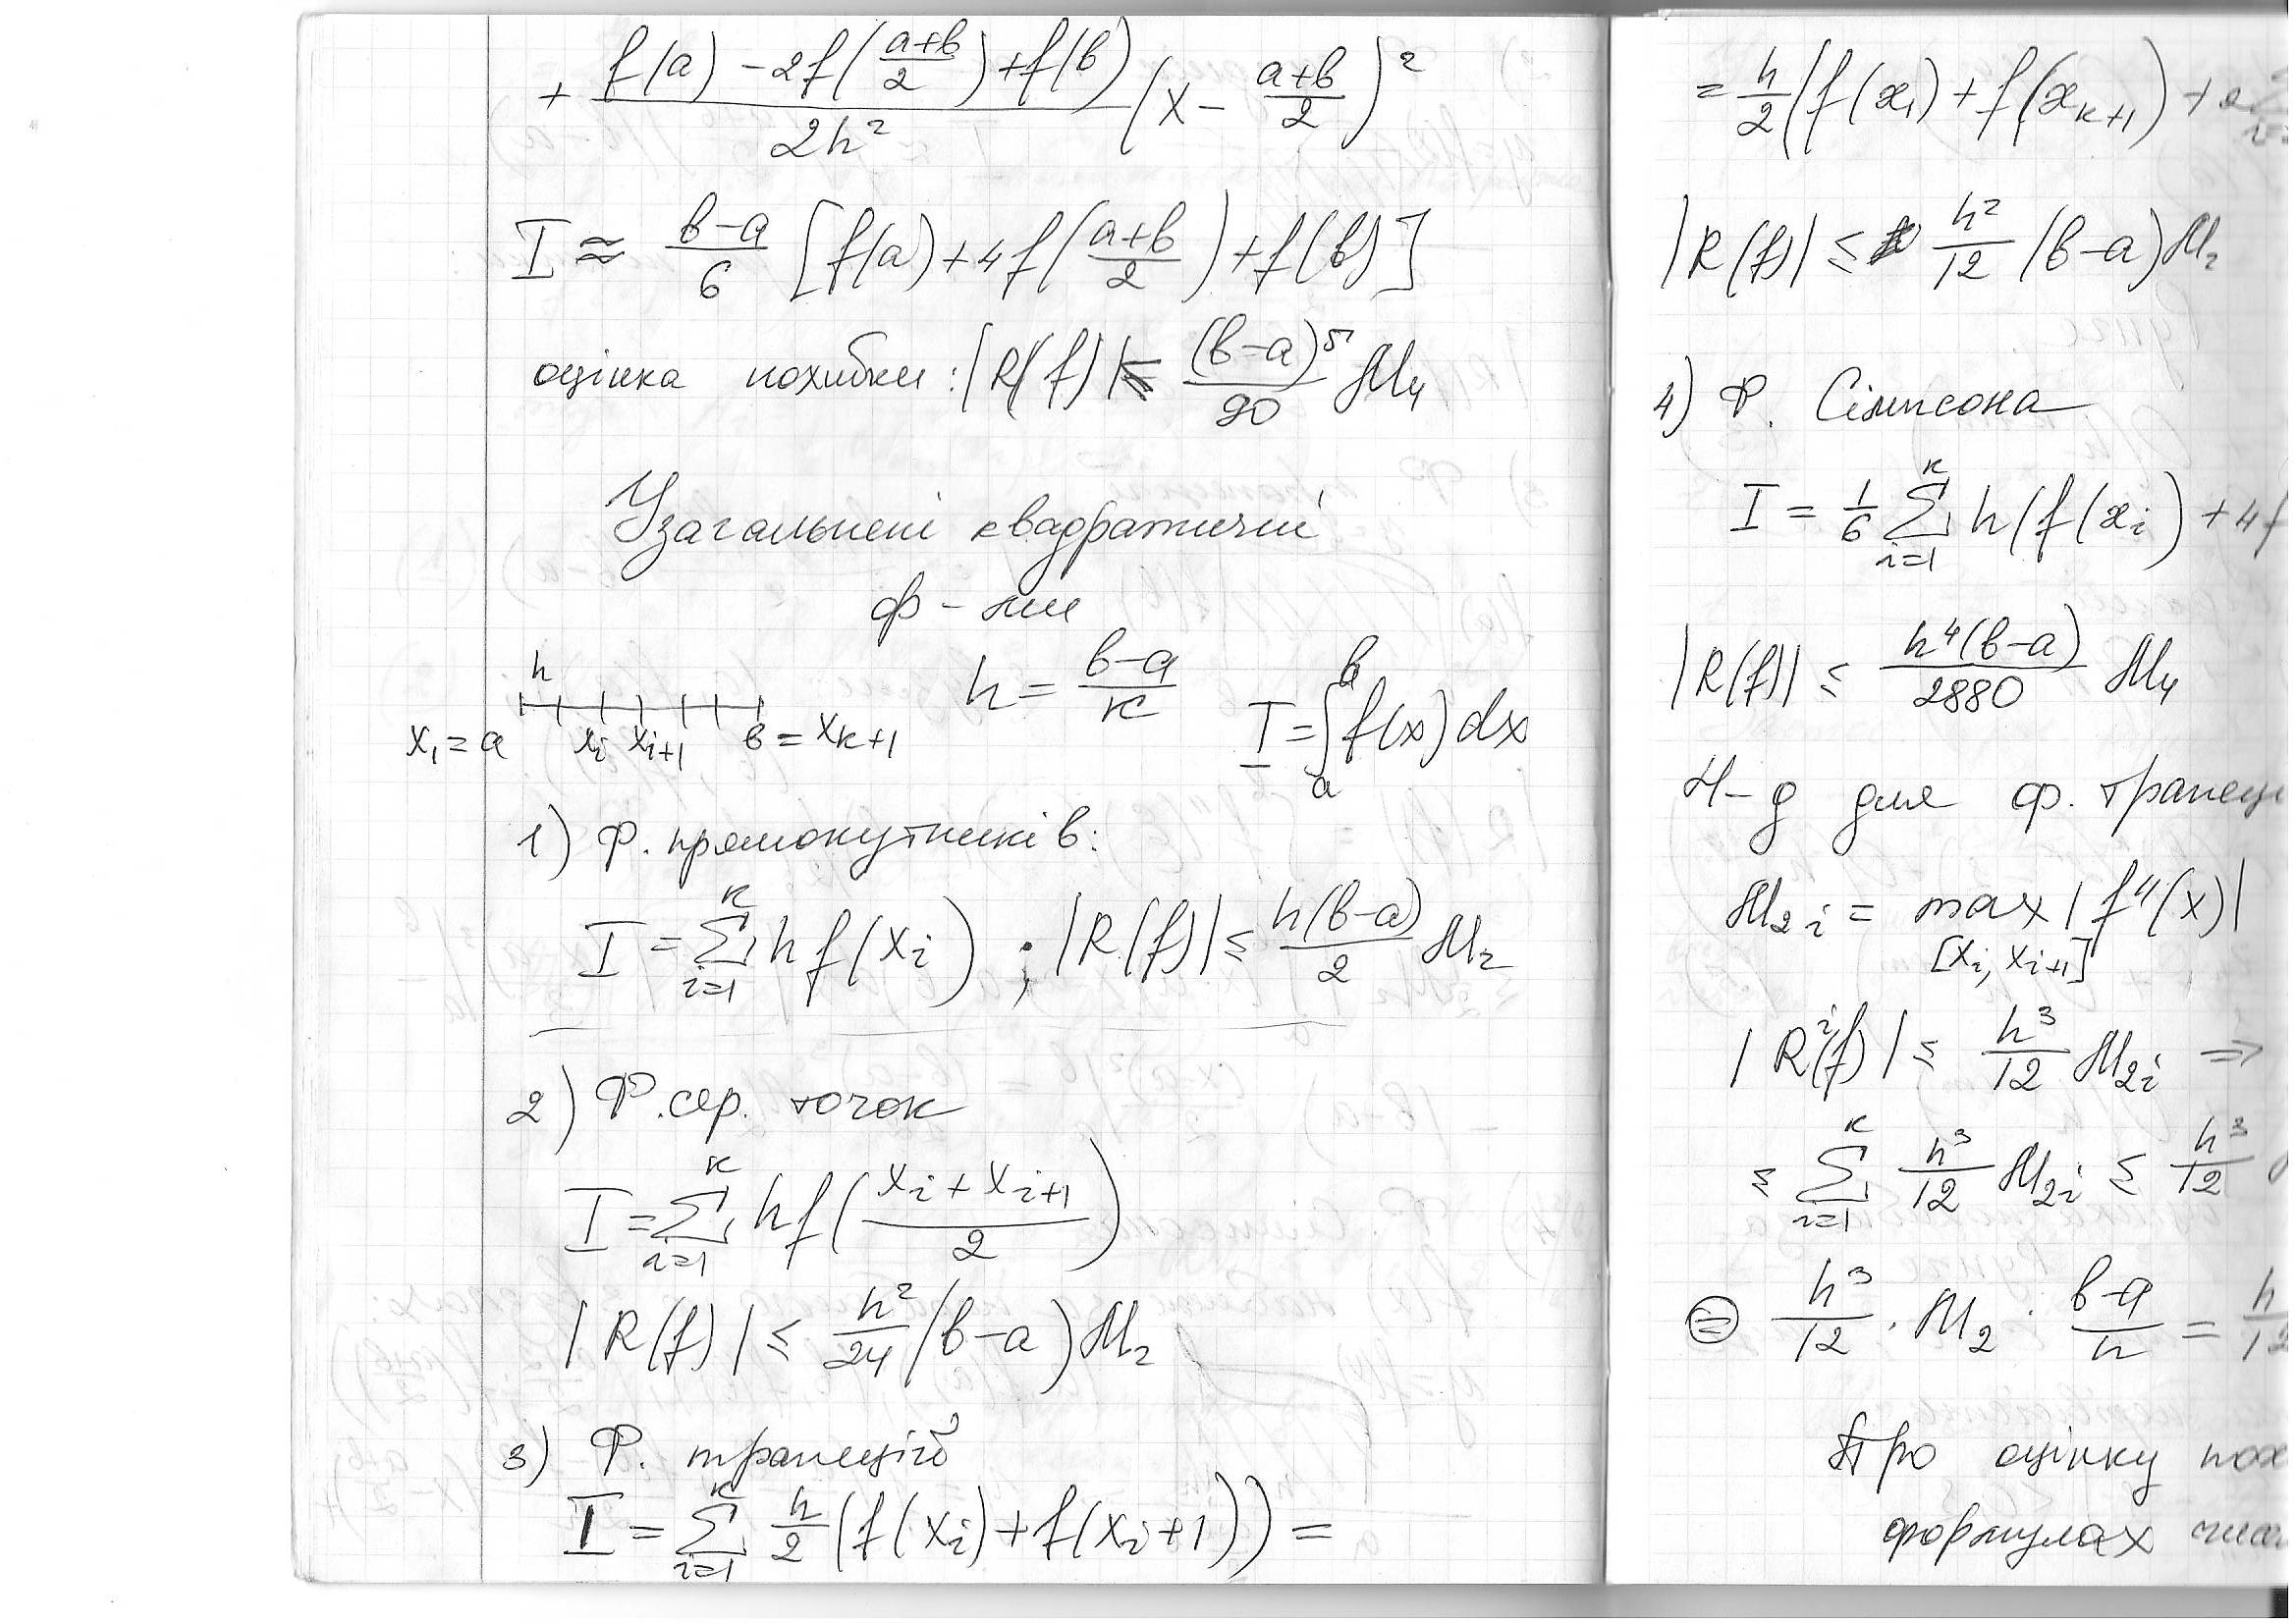 + (f(a) − 2f((a+b)/2) + f(b)) / 2h² (x − (a+b)/2)²
I ≈ (b−a)/6 [f(a) + 4f((a+b)/2) + f(b)]
оцінка похибки: |R(f)| ≤ (b−a)⁵/90 M₄
Узагальнені квадратичні
ф-ли
h
x₁ = a xᵢ xᵢ₊₁ b = xₖ₊₁
h = (b−a)/k
I = ∫ₐᵇ f(x) dx
1) Ф. прямокутників:
I = ∑ᵢ₌₁ᵏ h f(xᵢ) ; |R(f)| ≤ h(b−a)/2 M₂
2) Ф. сер. точок
I = ∑ᵢ₌₁ᵏ h f((xᵢ + xᵢ₊₁)/2)
|R(f)| ≤ h²/24 (b−a) M₂
3) Ф. трапецій
I = ∑ᵢ₌₁ᵏ h/2 (f(xᵢ) + f(xᵢ+1)) =
= h/2 (f(x₁) + f(xₖ₊₁) + 2
|R(f)| ≤ h²/12 (b−a) M₂
4) Ф. Сімпсона
I = 1/6 ∑ᵢ₌₁ᵏ h(f(xᵢ) + 4f
|R(f)| ≤ h⁴(b−a)/2880 M₄
Н-д для ф. трапеці
M₂ᵢ = max |f''(x)|
[xᵢ, xᵢ₊₁]
|Rⁱ(f)| ≤ h³/12 M₂ᵢ ⇒
≤ ∑ᵢ₌₁ᵏ h³/12 M₂ᵢ ≤ h³/12
⊜ h³/12 · M₂ · (b−a)/h = h/12
Про оцінку пох
формулах чис